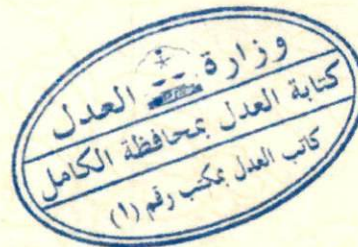 وزارة العدل
كتابة العدل بمحافظة الكامل
كاتب العدل بمكتب رقم (١)